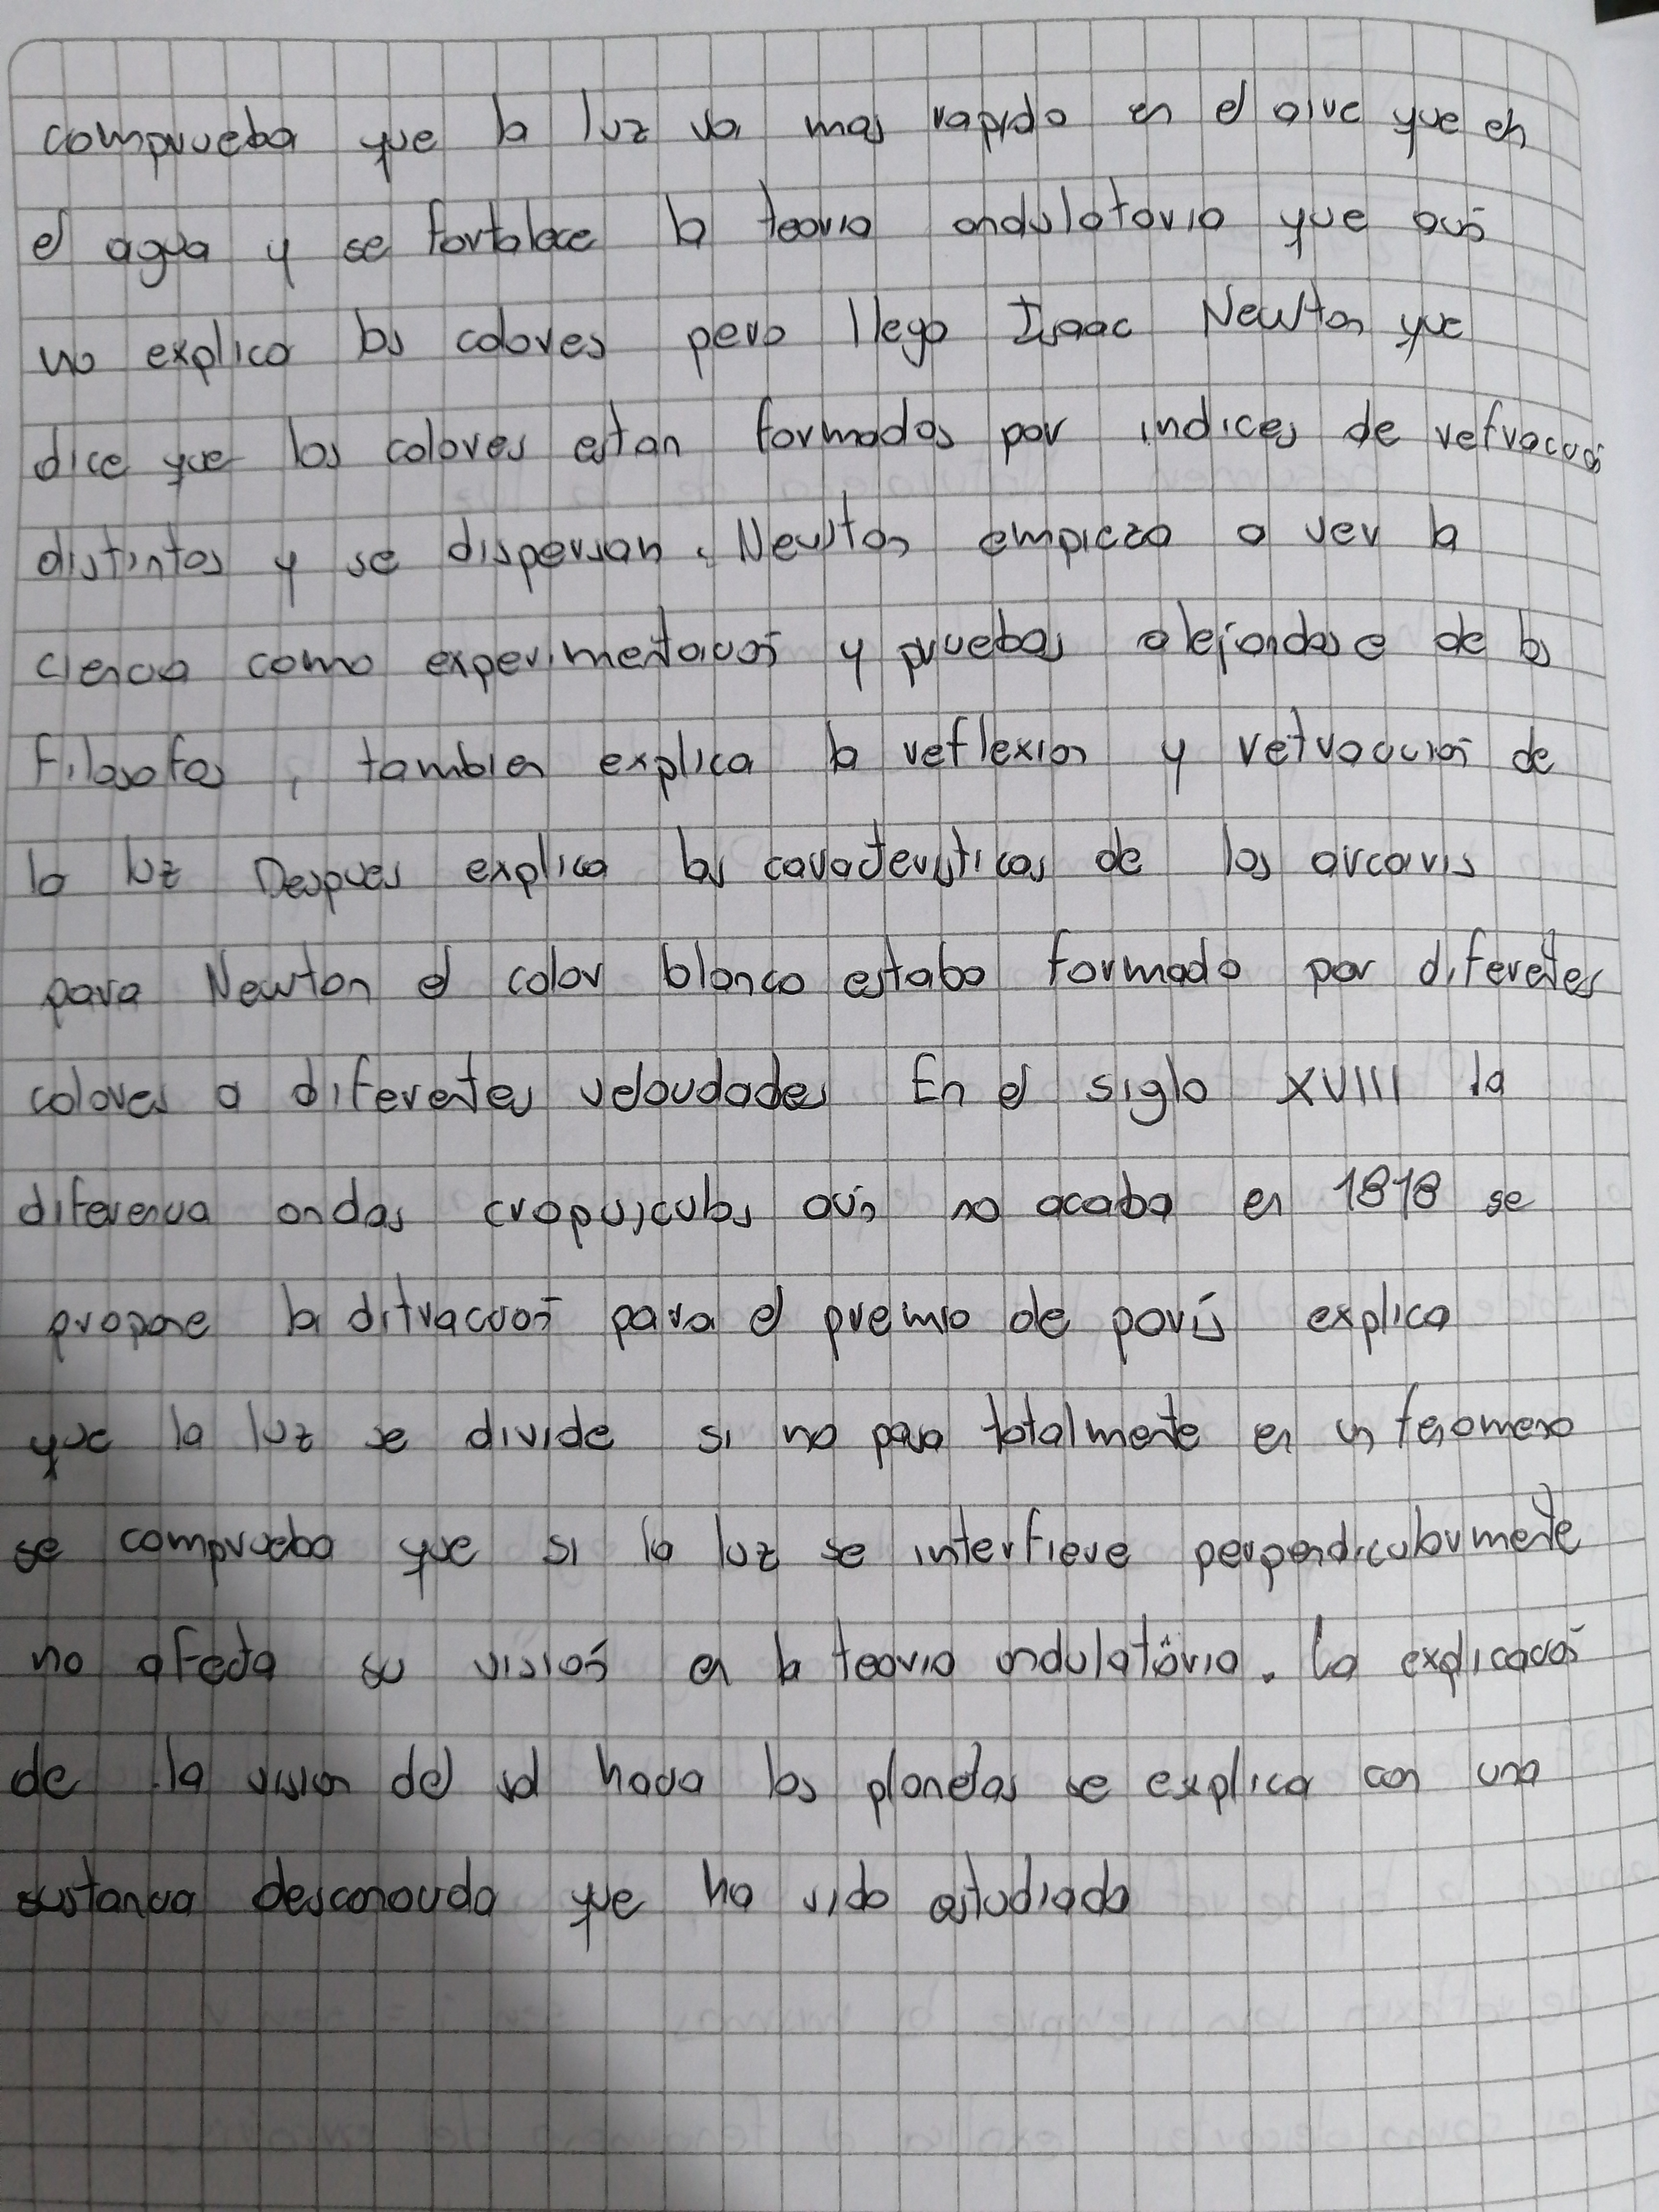 comprueba que la luz va mas rapido en el aire que en
el agua y se fortalece la teoria ondulatoria que aun
no explica los colores pero llego Isaac Newton que
dice que los colores estan formados por indices de refraccion
distintos y se dispersan. Newton empieza a ver la
ciencia como experimentacion y pruebas alejandose de los
filosofos, tambien explica la reflexion y refraccion de
la luz Despues explica las caracteristicas de los arcoiris
para Newton el color blanco estaba formado por diferentes
colores a diferentes velocidades En el siglo XVIII la
diferencia ondas cropusculos aún no acaba en 1818 se
propone la difraccion para el premio de parís explica
que la luz se divide si no pasa totalmente en un fenomeno
se comprueba que si la luz se interfiere perpendicularmente
no afecta su visión en la teoria ondulatoria. La explicacion
de la vision del sol hacia los planetas se explica con una
sustancia desconocida que ha sido estudiada